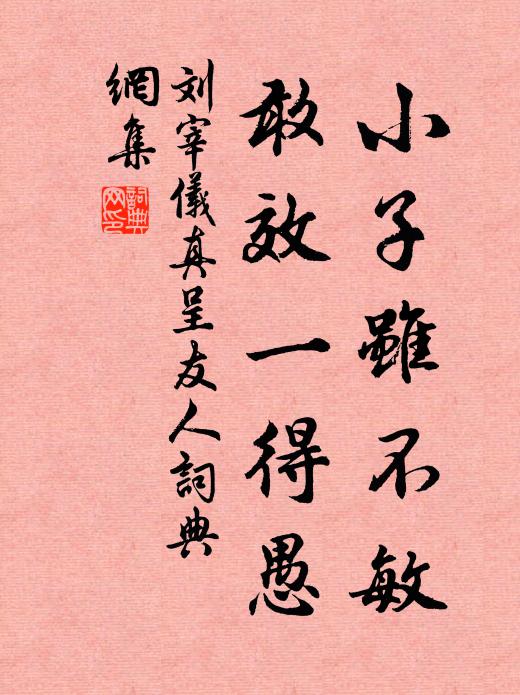 小子雖不敏
敢效一得愚
刘宰儀真呈友人詞典
網集
詞典
网印